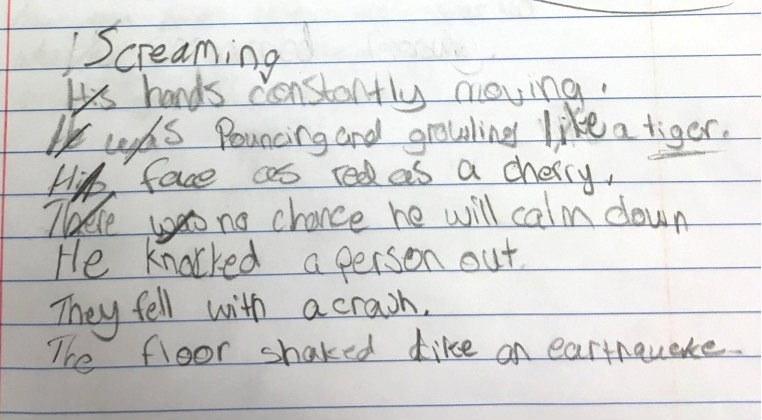 Screaming
His hands constantly moving.
He was Pouncing and growling like a tiger.
His face as red as a cherry.
There was no chance he will calm down
He knocked a person out
They fell with a crash.
The floor shaked like an earthqueke